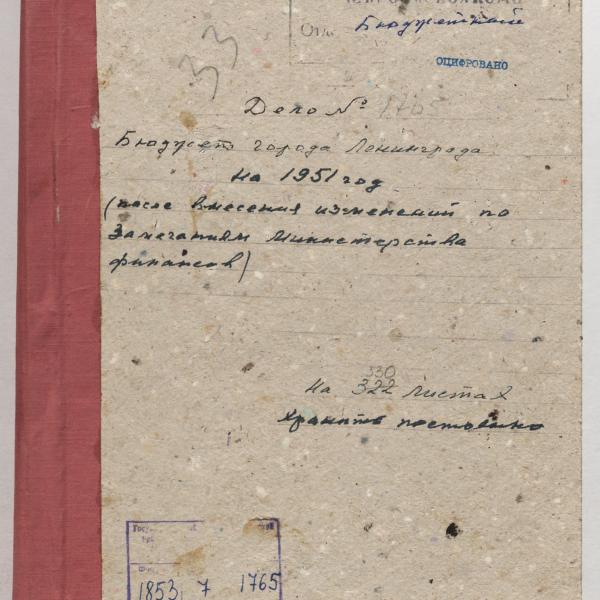 33
Отд. Бюджетный
ОЦИФРОВАНО
Дело № 1765
Бюджет города Ленинграда
на 1951 год
(после внесения изменений по
Замечаниям Министерства
финансов)
330
На 322 листах
Хранить постоянно
1853 7 1765